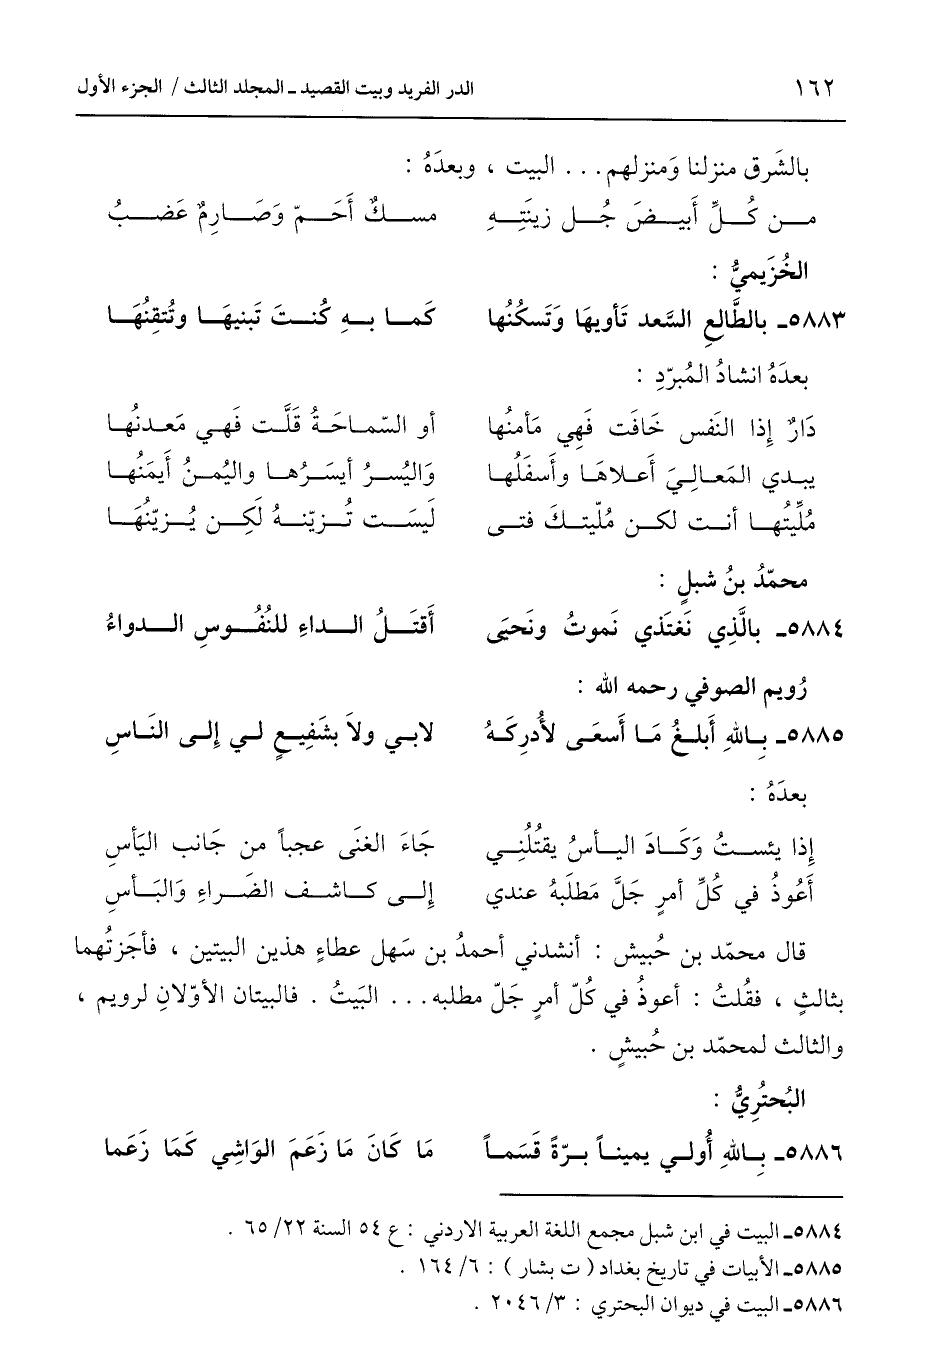 ١٦٢ الدر الفريد وبيت القصيد ـ المجلد الثالث / الجزء الأول
بالشَرق منزلنا وَمنزلهم . . . البيت ، وبعدَهُ :
مــن كُــلِّ أبيــضَ جُــل زينَتِــهِ مســكٌ أَحَــمّ وَصَــارمٌ عَضــبُ
الخُزَيميُّ :
٥٨٨٣ـ بالطَّالعِ السَّعد تَأويهَا وَتَسكُنُها كَمــا بــهِ كُنــتَ تَبنيهَــا وتُتقِنُهَــا
بعدَهُ انشادُ المُبرّدِ :
دَارٌ إذا النَفس خَافَت فَهِي مَأمنُها أو السّمـاحَـةُ قلَّـت فَهـي مَعـدنُهـا
يبـدي المَعـالـيَ أَعـلاهَـا وأَسفَلُهـا وَاليُســرُ أيسَــرُهــا واليُمــنُ أَيمَنُهــا
مُلِّيتُهــا أنــت لكــن مُلّيتــكَ فتــى ليسَــت تُــزيّنــهُ لَكِــن يُــزيّنُهَــا
محمّدُ بنُ شبلٍ :
٥٨٨٤ـ بالَّذِي نَغتَذي نَموتُ ونَحيَى أَقتَــلُ الــداءِ للنُفُــوسِ الــدواءُ
رُويم الصوفي رحمه الله :
٥٨٨٥ـ بـاللهِ أَبلـغُ مَـا أَسعَـى لأُدركَـهُ لابـي ولاَ بشَفِيـعٍ لـي إلـى النَـاسِ
بعدَهُ :
إذا يئسـتُ وَكَـادَ اليـأسُ يقتُلُنـي جَاءَ الغنَى عجباً من جَانب اليَأسِ
أَعُوذُ في كُلِّ أمرٍ جَلَّ مَطلَبهُ عندي إلـى كـاشـف الضَـراءِ وَالبَـأسِ
قال محمّد بن حُبيش : أنشدني أحمدُ بن سَهل عطاءٍ هذين البيتين ، فأجَزتُهما
بثالثٍ ، فقُلتُ : أعوذُ في كُلّ أمرٍ جَلّ مطلبه . . . البَيتُ . فالبيتان الأوّلانِ لرويم ،
والثالث لمحمّد بن حُبيشٍ .
البُحتُريُّ :
٥٨٨٦ـ بـاللهِ أُولـي يمينـاً بـرّةً قَسَمـاً مَا كَانَ مَا زَعَمَ الوَاشِي كَمَا زَعَما
٥٨٨٤ـ البيت في ابن شبل مجمع اللغة العربية الاردني : ع ٥٤ السنة ٢٢/ ٦٥ .
٥٨٨٥ـ الأبيات في تاريخ بغداد ( ت بشار ) : ٦/ ١٦٤ .
٥٨٨٦ـ البيت في ديوان البحتري : ٣/ ٢٠٤٦ .